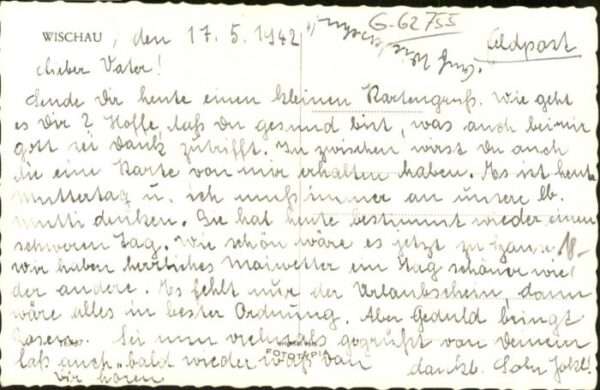 G-62755
WISCHAU, den 17. 5. 1942
Feldpost
Lieber Vater!
Sende Dir heute einen kleinen Kartengruß. Wie geht
es Dir? Hoffe, daß Du gesund bist, was auch bei mir
Gott sei Dank zutrifft. In zwischen wirst Du auch
die eine Karte von mir erhalten haben. Es ist heute
Muttertag u. ich muß immer an unsere lb.
Mutti denken. Sie hat heute bestimmt wieder einen
schweren Tag. Wie schön wäre es jetzt zu Hause.
Wir haben herrliches Maiwetter ein Tag schöner wie
der andere. Es fehlt nur der Urlaubschein, dann
wäre alles in bester Ordnung. Aber Geduld bringt
Rosen. Sei nun vielmals gegrüßt von Deinem
laß auch bald wieder was von dankb. Sohn
Dir hören
FOTOTYPIA